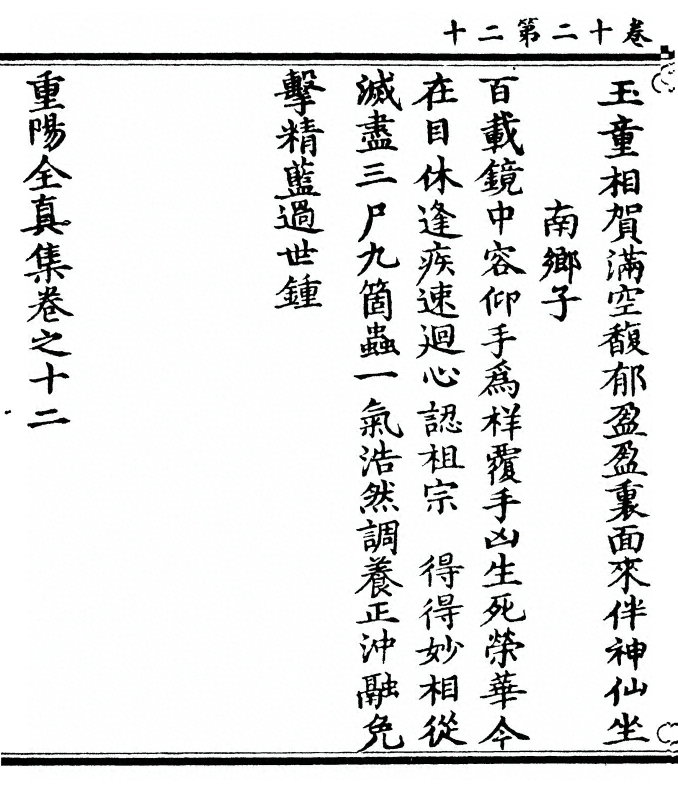 卷十二第二十
玉童相賀滿空馥郁盈盈裏面來伴神仙坐
南鄉子
百載鏡中容仰手爲样覆手凶生死榮華今
在目休逢疾速迴心認祖宗　得得妙相從
滅盡三尸九箇蟲一氣浩然調養正沖融免
擊精藍過世鍾
重陽全真集卷之十二